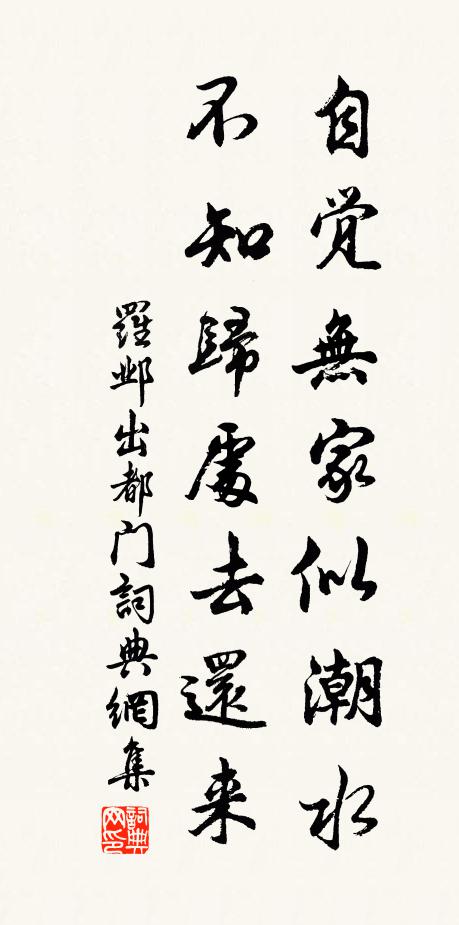 自覚無家似潮水
不知歸處去還来
羅鄴出都门詞典網集
詞典网印